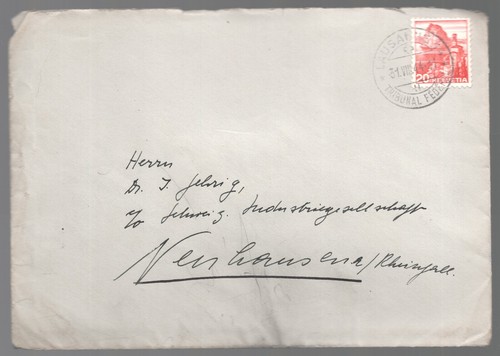 LAUSANNE
31.VIII
TRIBUNAL FÉDÉRAL
20
HELVETIA
Herrn
Dr. I. Gehrig,
c/o Schweiz. Industriegesellschaft
Neuhausen a/Rheinfall.